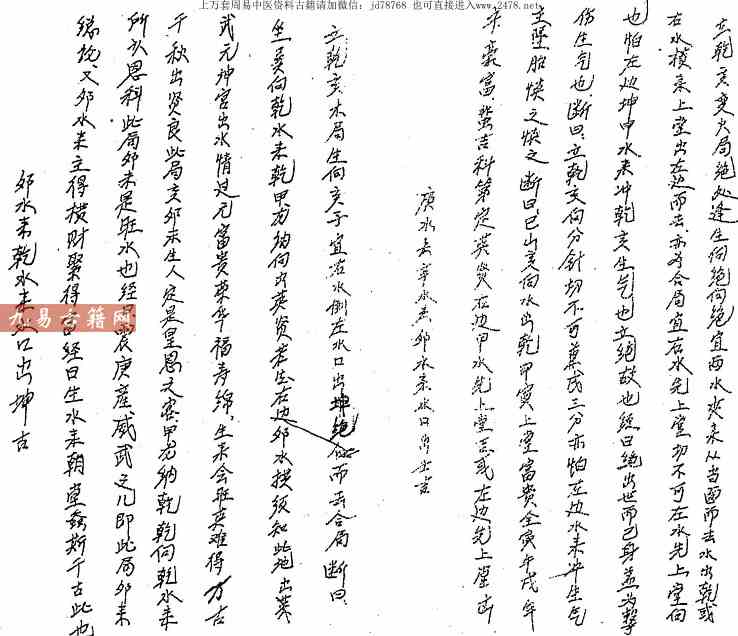 上万套周易中医资料古籍请加微信：jd78768 也可直接进入www.2478.net.
立乾亥变火局绝处逢生向绝向绝宜两水夹来从当面而去水出乾或
右水横来上堂出左边而去亦为合局宜右水先上堂切不可左水先上堂向
也怕左边坤申水来冲乾亥生气也立绝故也经曰绝出世而已身益为
伤生气也断曰立乾亥向分针切不可兼戌三分亦怕左边水来冲生气
主坠胎慎之慎之断曰巳山亥向水出乾甲寅上堂富贵生寅午戌年
来豪富登科第定英贤右边甲水先上堂或左边先上堂出
庚水去辛水去卯水来水口出吉
立乾亥木局生向亥子宜右水倒左水口出坤绝位而去合局断曰
生巽向乾水来乾甲方纳向为英贤若生右边卯水横须知此地出英
武元坤宫出水情过元富贵荣华福寿绵生来会旺真难得万古
千秋出贤良此局亥卯未生人定是皇恩之客甲方纳乾乾向乾水来
所以恩科此局卯未是旺水也经曰震庚产威武之儿即此局卯来
缘说又卯水来主得横财聚得也经曰生水来朝堂螽斯千古此也
卯水来乾水来水口出坤吉
九易古籍网